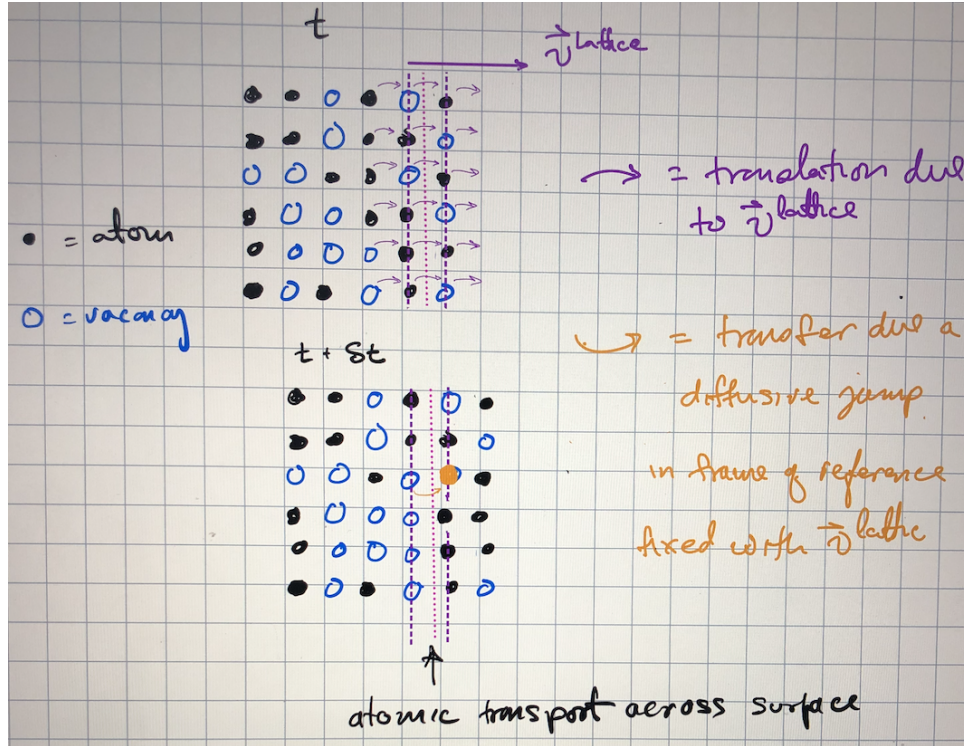 t
v lattice
= translation due
to v lattice
• = atom
o = vacancy
= transfer due a
diffusive jump
in frame of reference
fixed with v lattic
t + δt
atomic transport across surface